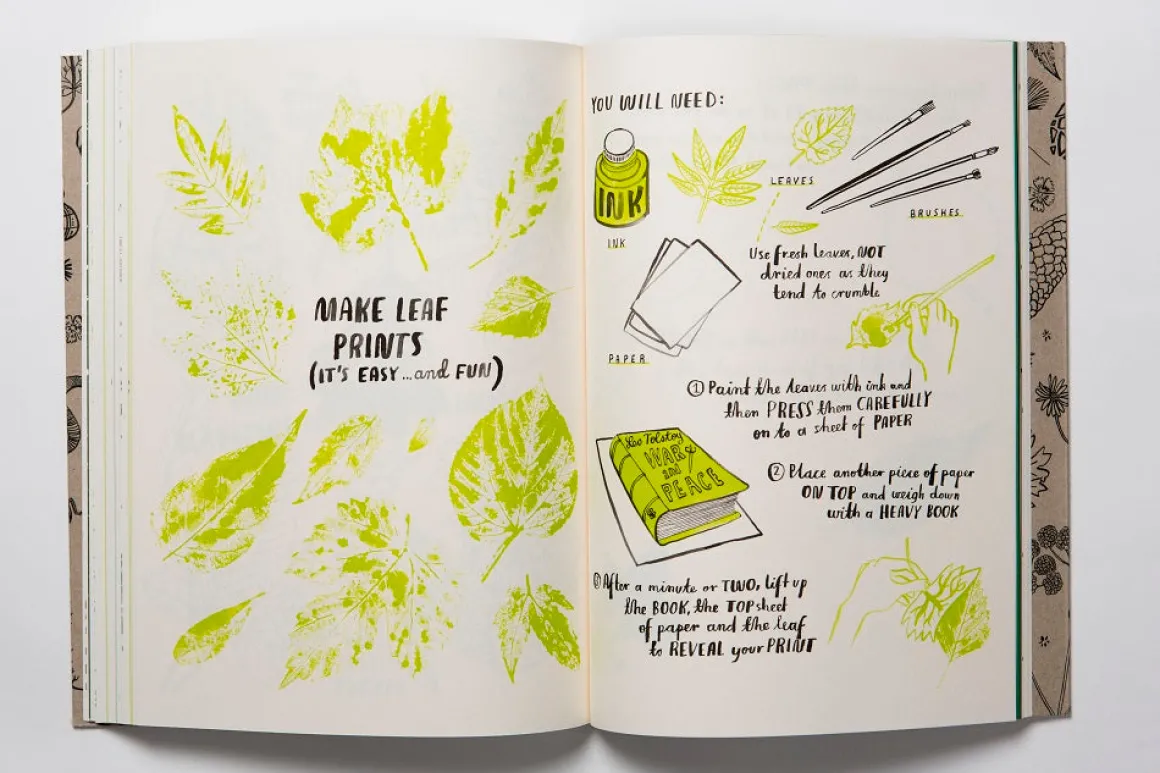 MAKE LEAF
PRINTS
(IT'S EASY...and FUN)
YOU WILL NEED:
INK
INK
LEAVES
BRUSHES
PAPER
Use fresh leaves, NOT
dried ones as they
tend to crumble
① Paint the leaves with ink and
then PRESS them CAREFULLY
on to a sheet of PAPER
Leo Tolstoy
WAR
and
PEACE
② Place another piece of paper
ON TOP and weigh down
with a HEAVY BOOK
③ After a minute or TWO, lift up
the BOOK, the TOP sheet
of paper and the leaf
to REVEAL your PRINT